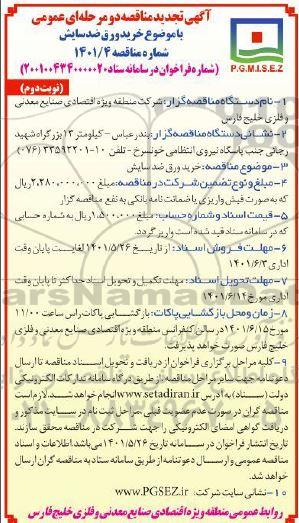 آگهی تجدید مناقصه دو مرحله‌ای عمومی
با موضوع خرید ورق ضد سایش
شماره مناقصه ۱۴۰۱/۴
(شماره فراخوان در سامانه ستاد ۲۰۰۱۰۰۴۳۴۰۰۰۰۰۲۰)
P.G.M.I.S.E.Z
(نوبت دوم)
۱-نام دستگاه مناقصه گزار: شرکت منطقه ویژه اقتصادی صنایع معدنی
و فلزی خلیج فارس
۲-نشانی دستگاه مناقصه گزار: بندرعباس - کیلومتر ۱۳ بزرگراه شهید
رجائی جنب پاسگاه نیروی انتظامی خونسرخ - تلفن ۱۰-۳۳۵۹۲۲۰۱ (۰۷۶)
۳-موضوع مناقصه: خرید ورق ضد سایش
۴-مبلغ و نوع تضمین شرکت در مناقصه: مبلغ ۲.۲۸۰.۰۰۰.۰۰۰ ریال
که به صورت فیش واریزی یا ضمانت نامه بانکی به نفع مناقصه گزار
۵-قیمت اسناد و شماره حساب: مبلغ ۱.۵۰۰.۰۰۰ ریال به شماره حسابی
که در سامانه ستاد قید شده است واریز گردد.
۶-مهلت فروش اسناد: از تاریخ ۱۴۰۱/۵/۲۶ لغایت پایان وقت
اداری ۱۴۰۱/۶/۳
۷-مهلت تحویل اسناد: مهلت تکمیل و تحویل اسناد حداکثر تا پایان وقت
اداری مورخ ۱۴۰۱/۶/۱۴
۸-زمان و محل بازگشایی پاکات: بازگشایی پاکات راس ساعت ۱۱/۰۰
مورخ ۱۴۰۱/۶/۱۵ در سالن کنفرانس منطقه ویژه اقتصادی صنایع معدنی و فلزی
خلیج فارس صورت خواهد پذیرفت
۹-کلیه مراحل برگزاری فراخوان از دریافت و تحویل اسناد مناقصه تا ارسال
دعوتنامه جهت سایر مراحل مناقصه، از طریق درگاه سامانه تدارکات الکترونیکی
دولت (ستاد) به آدرس www.setadiran.ir انجام خواهد شد. لازم است
مناقصه گران در صورت عدم عضویت قبلی، مراحل ثبت نام در سایت مذکور و
دریافت گواهی امضای الکترونیکی را جهت شرکت در مناقصه محقق سازند.
تاریخ انتشار فراخوان در سامانه تاریخ ۱۴۰۱/۵/۲۶ می باشد. اطلاعات و اسناد
مناقصه عمومی و ارسال دعوتنامه از طریق سامانه ستاد به مناقصه گران ارسال
خواهد شد.
۱۰-نشانی سایت شرکت: www.PGSEZ.ir
روابط عمومی منطقه ویژه اقتصادی صنایع معدنی و فلزی خلیج فارس